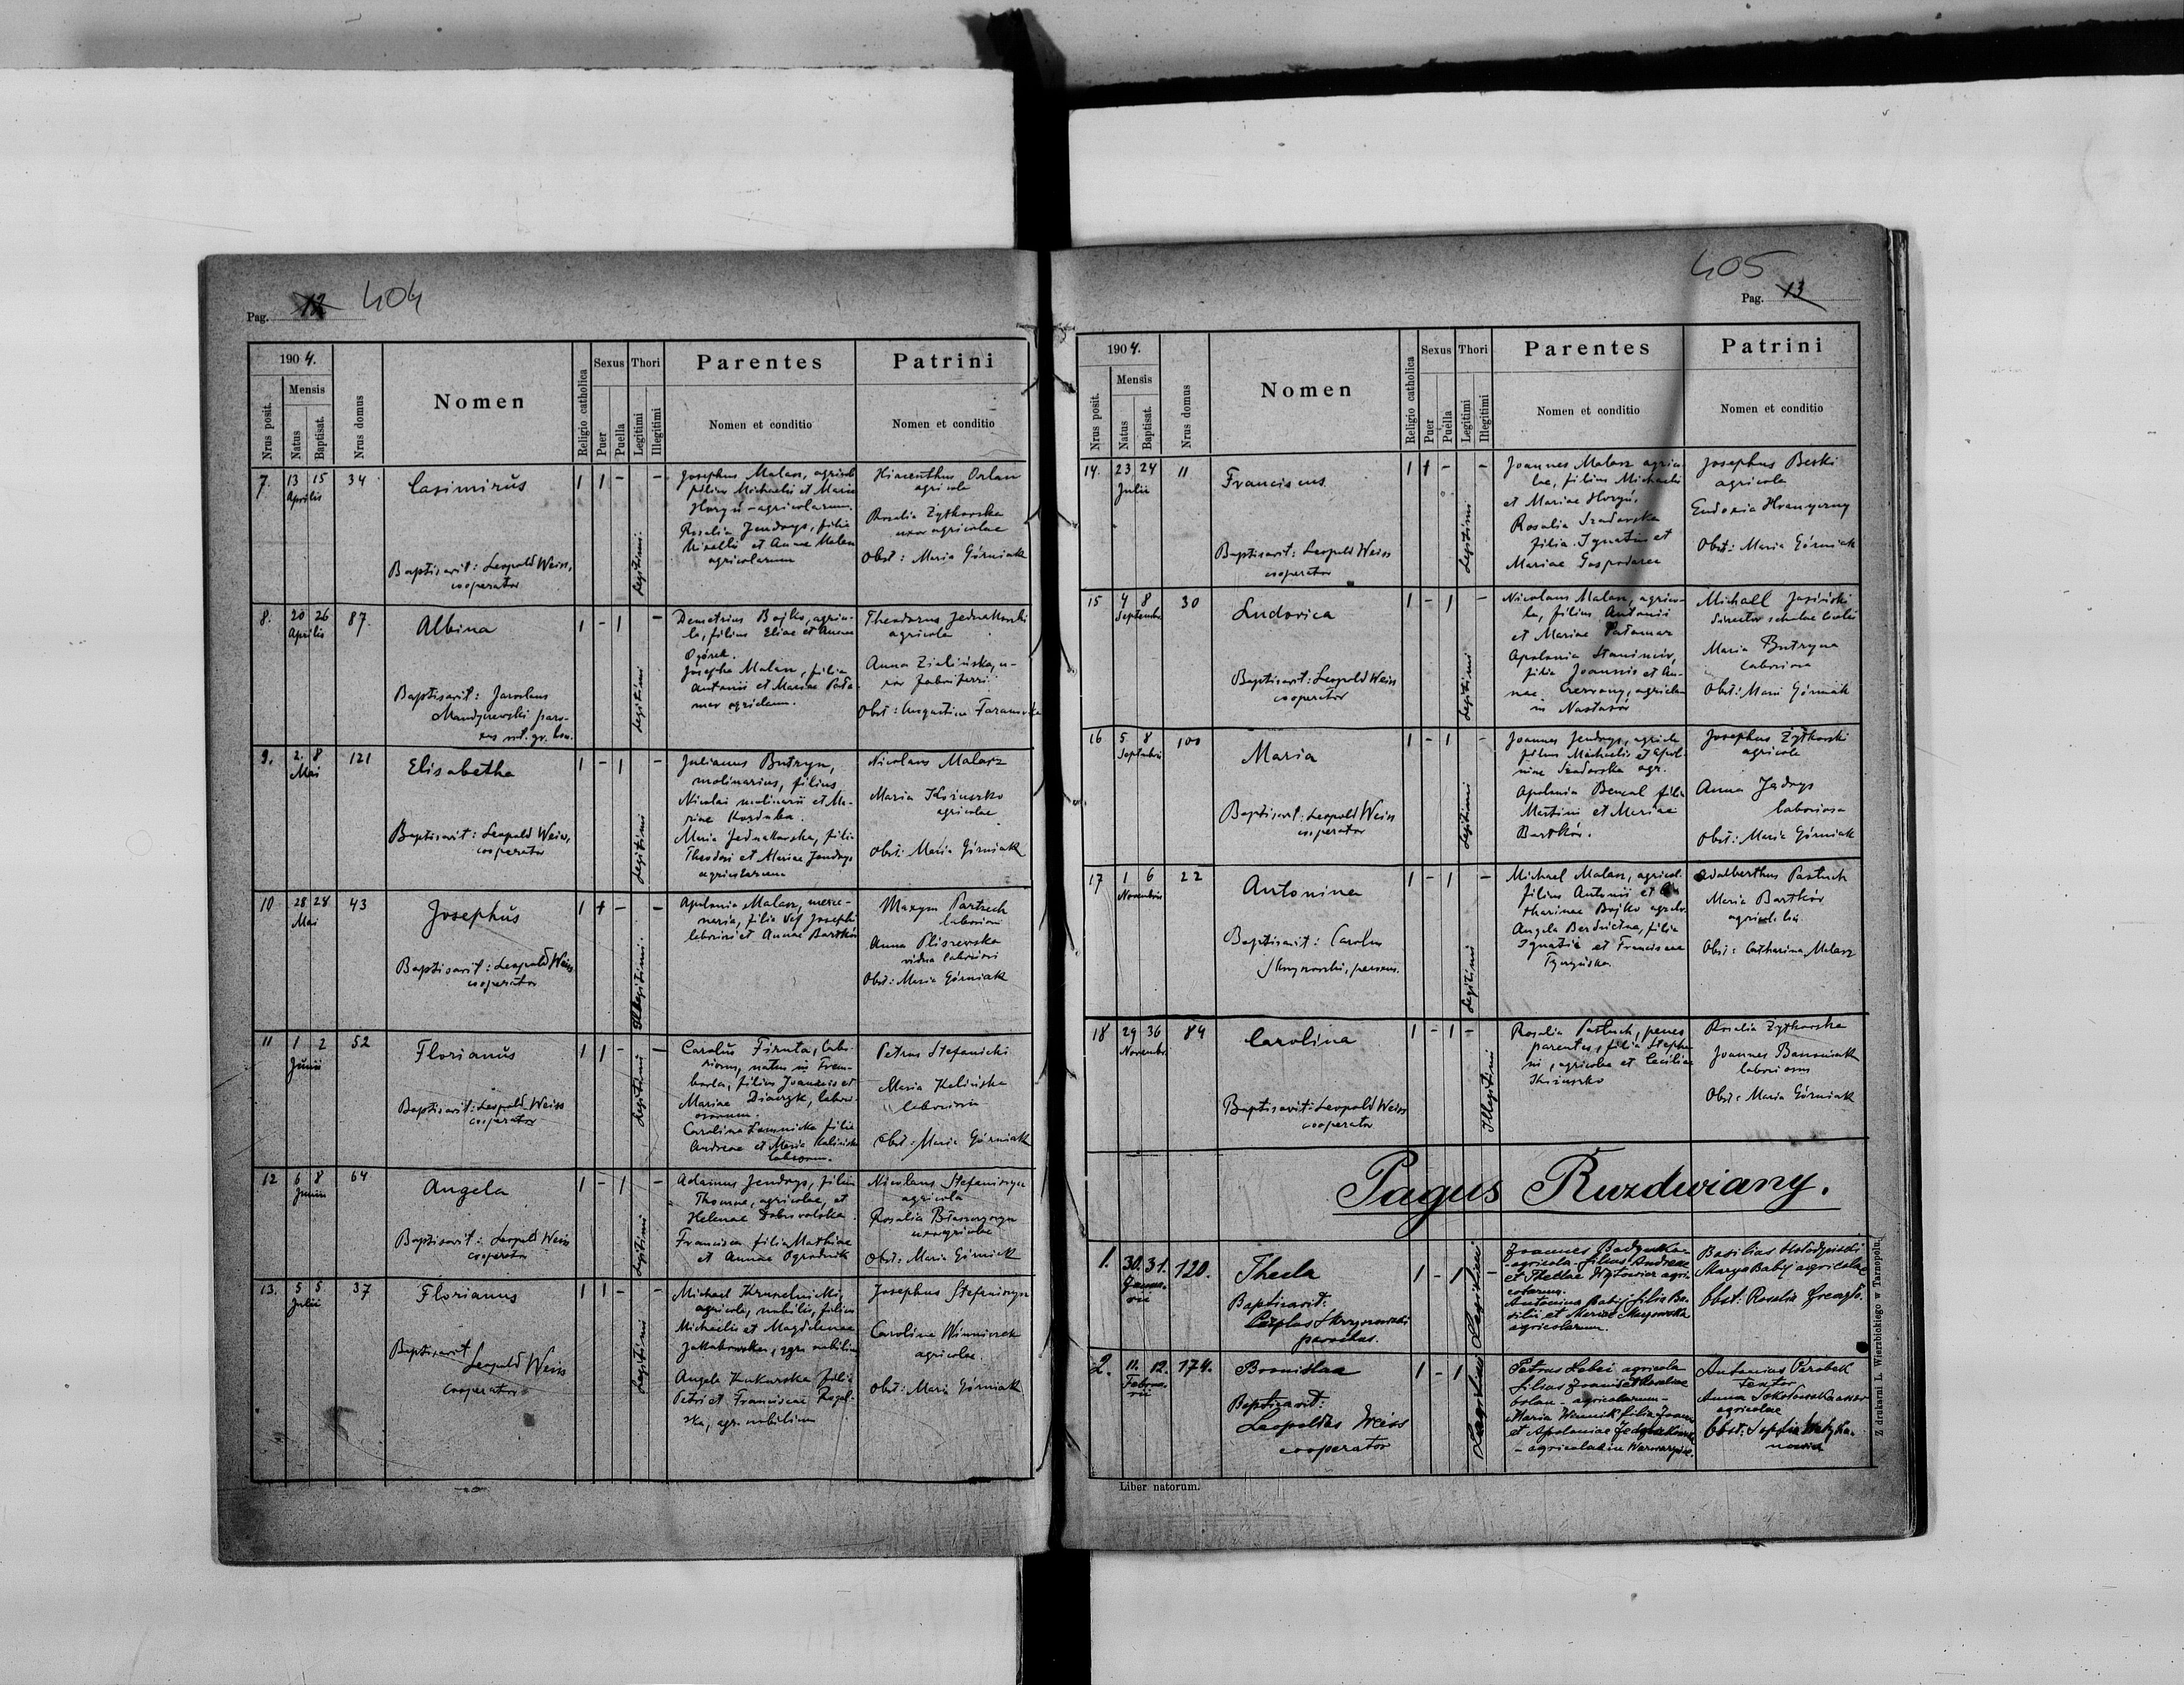 Pag. 12 404
1904.
Nrus posit.
Mensis
Natus
Baptisat.
Nrus domus
Nomen
Religio catholica
Sexus
Puer
Puella
Thori
Legitimi
Illegitimi
Parentes
Nomen et conditio
Patrini
Nomen et conditio
7. 13 15 34
Aprilis
Casimirus
Baptisavit: Leopold Weiss,
cooperator
1 1 - -
Legitimi
Josephus Malasz, agricola
filius Michaelis et Mariae
agricolarum.
Rosalia Jendrys, filia
et Annae Malasz
agricolarum
Hiacenthus Orlan
agricola
Rosalia Zytkowska
uxor agricolae
Obst: Maria Górniak
8. 20 26 87.
Aprilis
Albina
Baptisavit: Jaroslaus
Mandyczewski paro-
1 - 1 -
Legitimi
Demetrius Bojko, agrico-
la, filius Eliae et Annae
Ogórek.
Josepha Malasz, filia
Antonii et Mariae Pała-
mar agricolarum.
Theodorus Jednakowski
agricola
Anna Zielińska, u-
xor fabri ferri
Obst: Augustina
9. 2. 8 121
Mai
Elisabetha
Baptisavit: Leopold Weiss,
cooperator
1 - 1 -
Legitimi
Julianus Butryn,
molinarius, filius
Nicolai molinarii et Ma-
riae Korduba.
Maria Jednakowska, filia
Theodori et Mariae Jendrys
agricolarum
Nicolaus Malasz
Maria Kożuszko
agricolae
Obst: Maria Górniak
10 28 28 43
Mai
Josephus
Baptisavit: Leopold Weiss
cooperator
1 1 - -
Illegitimi
Apolonia Malasz, merce-
naria, filia Josephi
laboriosi et Annae Bartków
Maxym Partzech
laboriosi
Anna Pliszewska
vidua laboriosi
Obst: Maria Górniak
11 1 2 52
Junii
Florianus
Baptisavit: Leopold Weiss
cooperator
1 1 - -
Legitimi
Carolus Firuta, labo-
riosus, natus in Trem-
bowla, filius Joannis et
Mariae Diaczyk, labori-
osorum.
Carolina Lomnicka filia
Andreae et Maria Kalińska
laborios.
Petrus Stefanicki
Maria Kalińska
laboriosi
Obst: Maria Górniak
12 6 8 64
Junii
Angela
Baptisavit: Leopold Weiss
cooperator
1 - 1 -
Legitimi
Adamus Jendrys, filius
Thomae, agricolae, et
Helenae Dobrowolska.
Francisca filia Mathiae
et Annae Ogrodnik
Nicolaus Stefaniszyn
agricola
Rosalia
uxor agricolae
Obst: Maria Górniak
13. 5 5 37
Julii
Florianus
Baptisavit
Leopold Weiss
cooperator
1 1 - -
Legitimi
Michael Krupelnicki,
agricola, nobilis, filius
Michaelis et Magdalenae
Jakubowska, agr. nobilium
Angela Kukurska filia
Petri et Franciscae Rogal-
ska, agr. nobilium
Josephus Stefaniszyn
Carolina Winniczek
agricolae.
Obst: Maria Górniak
405
Pag. 13
1904.
Nrus posit.
Mensis
Natus
Baptisat.
Nrus domus
Nomen
Religio catholica
Sexus
Puer
Puella
Thori
Legitimi
Illegitimi
Parentes
Nomen et conditio
Patrini
Nomen et conditio
14. 23 24 11
Julii
Franciscus
Baptisavit: Leopold Weiss
cooperator
1 1 - -
Legitimi
Joannes Malasz agrico-
lae, filius Michaelis
et Mariae
Rosalia Szadowska
filia Ignatii et
Mariae Gospodarea
Josephus Beski
agricola
Eudoxia
Obst: Maria Górniak
15 4 8 30
Septembris
Ludovica
Baptisavit: Leopold Weiss
cooperator
1 - 1 -
Legitimi
Nicolaus Malasz, agrico-
la, filius Antonii
et Mariae Pałamar
Apolonia
filia Joannis et An-
nae Czerwony, agricolarum
in Nastasów
Michael Jasiński
director scholae localis
Maria Butryn
laboriosa
Obst: Maria Górniak
16 5 8 100
Septembris
Maria
Baptisavit: Leopold Weiss
cooperator
1 - 1 -
Legitimi
Joannes Jendrys, agricola
filius Michaelis et Apol-
niae Szadowska agr.
Apolonia Bencal filia
Martini et Mariae
Bartków.
Josephus Zytkowski
agricola
Anna Jędrys
laboriosa
Obst: Maria Górniak
17 1 6 22
Novembris
Antonina
Baptisavit: Carolus
Skrzyszowski, parochus.
1 - 1 -
Legitimi
Michael Malasz, agricol.
filius Antonii et Ca-
tharinae Bojko agricol.
Angela filia
Ignatii et Franciscae
Adalbertus Pastuch
Maria Bartków
agricolae
Obst: Catharina Malasz
18 29 30 84
Novembr.
Carolina
Baptisavit: Leopold Weiss
cooperator
1 - 1 -
Illegitimi
Rosalia Pastuch, penes
parentes, filia Stepha-
ni, agricolae et Ceciliae
Kożuszko
Rosalia Zytkowska
Joannes
laboriosus
Obst: Maria Górniak
Pagus Ruzdwiany.
1. 30. 31. 120.
Janua-
rii
Thecla
Baptisavit:
Carolus Skrzyszowski
parochus.
1 - 1 -
Legitimi
Joannes
- agricola - filius Andreae
et Theclae Wojtowicz agri-
colarum.
Antonina Babij filia Ba-
silii et Mariae
agricolarum.
Basilius
Marya Babij agricolae
Obst: Rosalia
2. 11. 12. 174.
Februa-
rii
Bronislaa
Baptisavit:
Leopoldus Weiss
cooperator
1 - 1
Legitimi
Petrus agricola
filius Joannis et Rosaliae
- agricolarum -
Maria Winnik filia Joannis
et Apoloniae
- agricolarum
Antonius Parobek
textor
Anna Sokołowska uxor
agricolae
Obst: Sophia
Liber natorum.
Z drukarni L. Wierzbickiego w Tarnopolu.